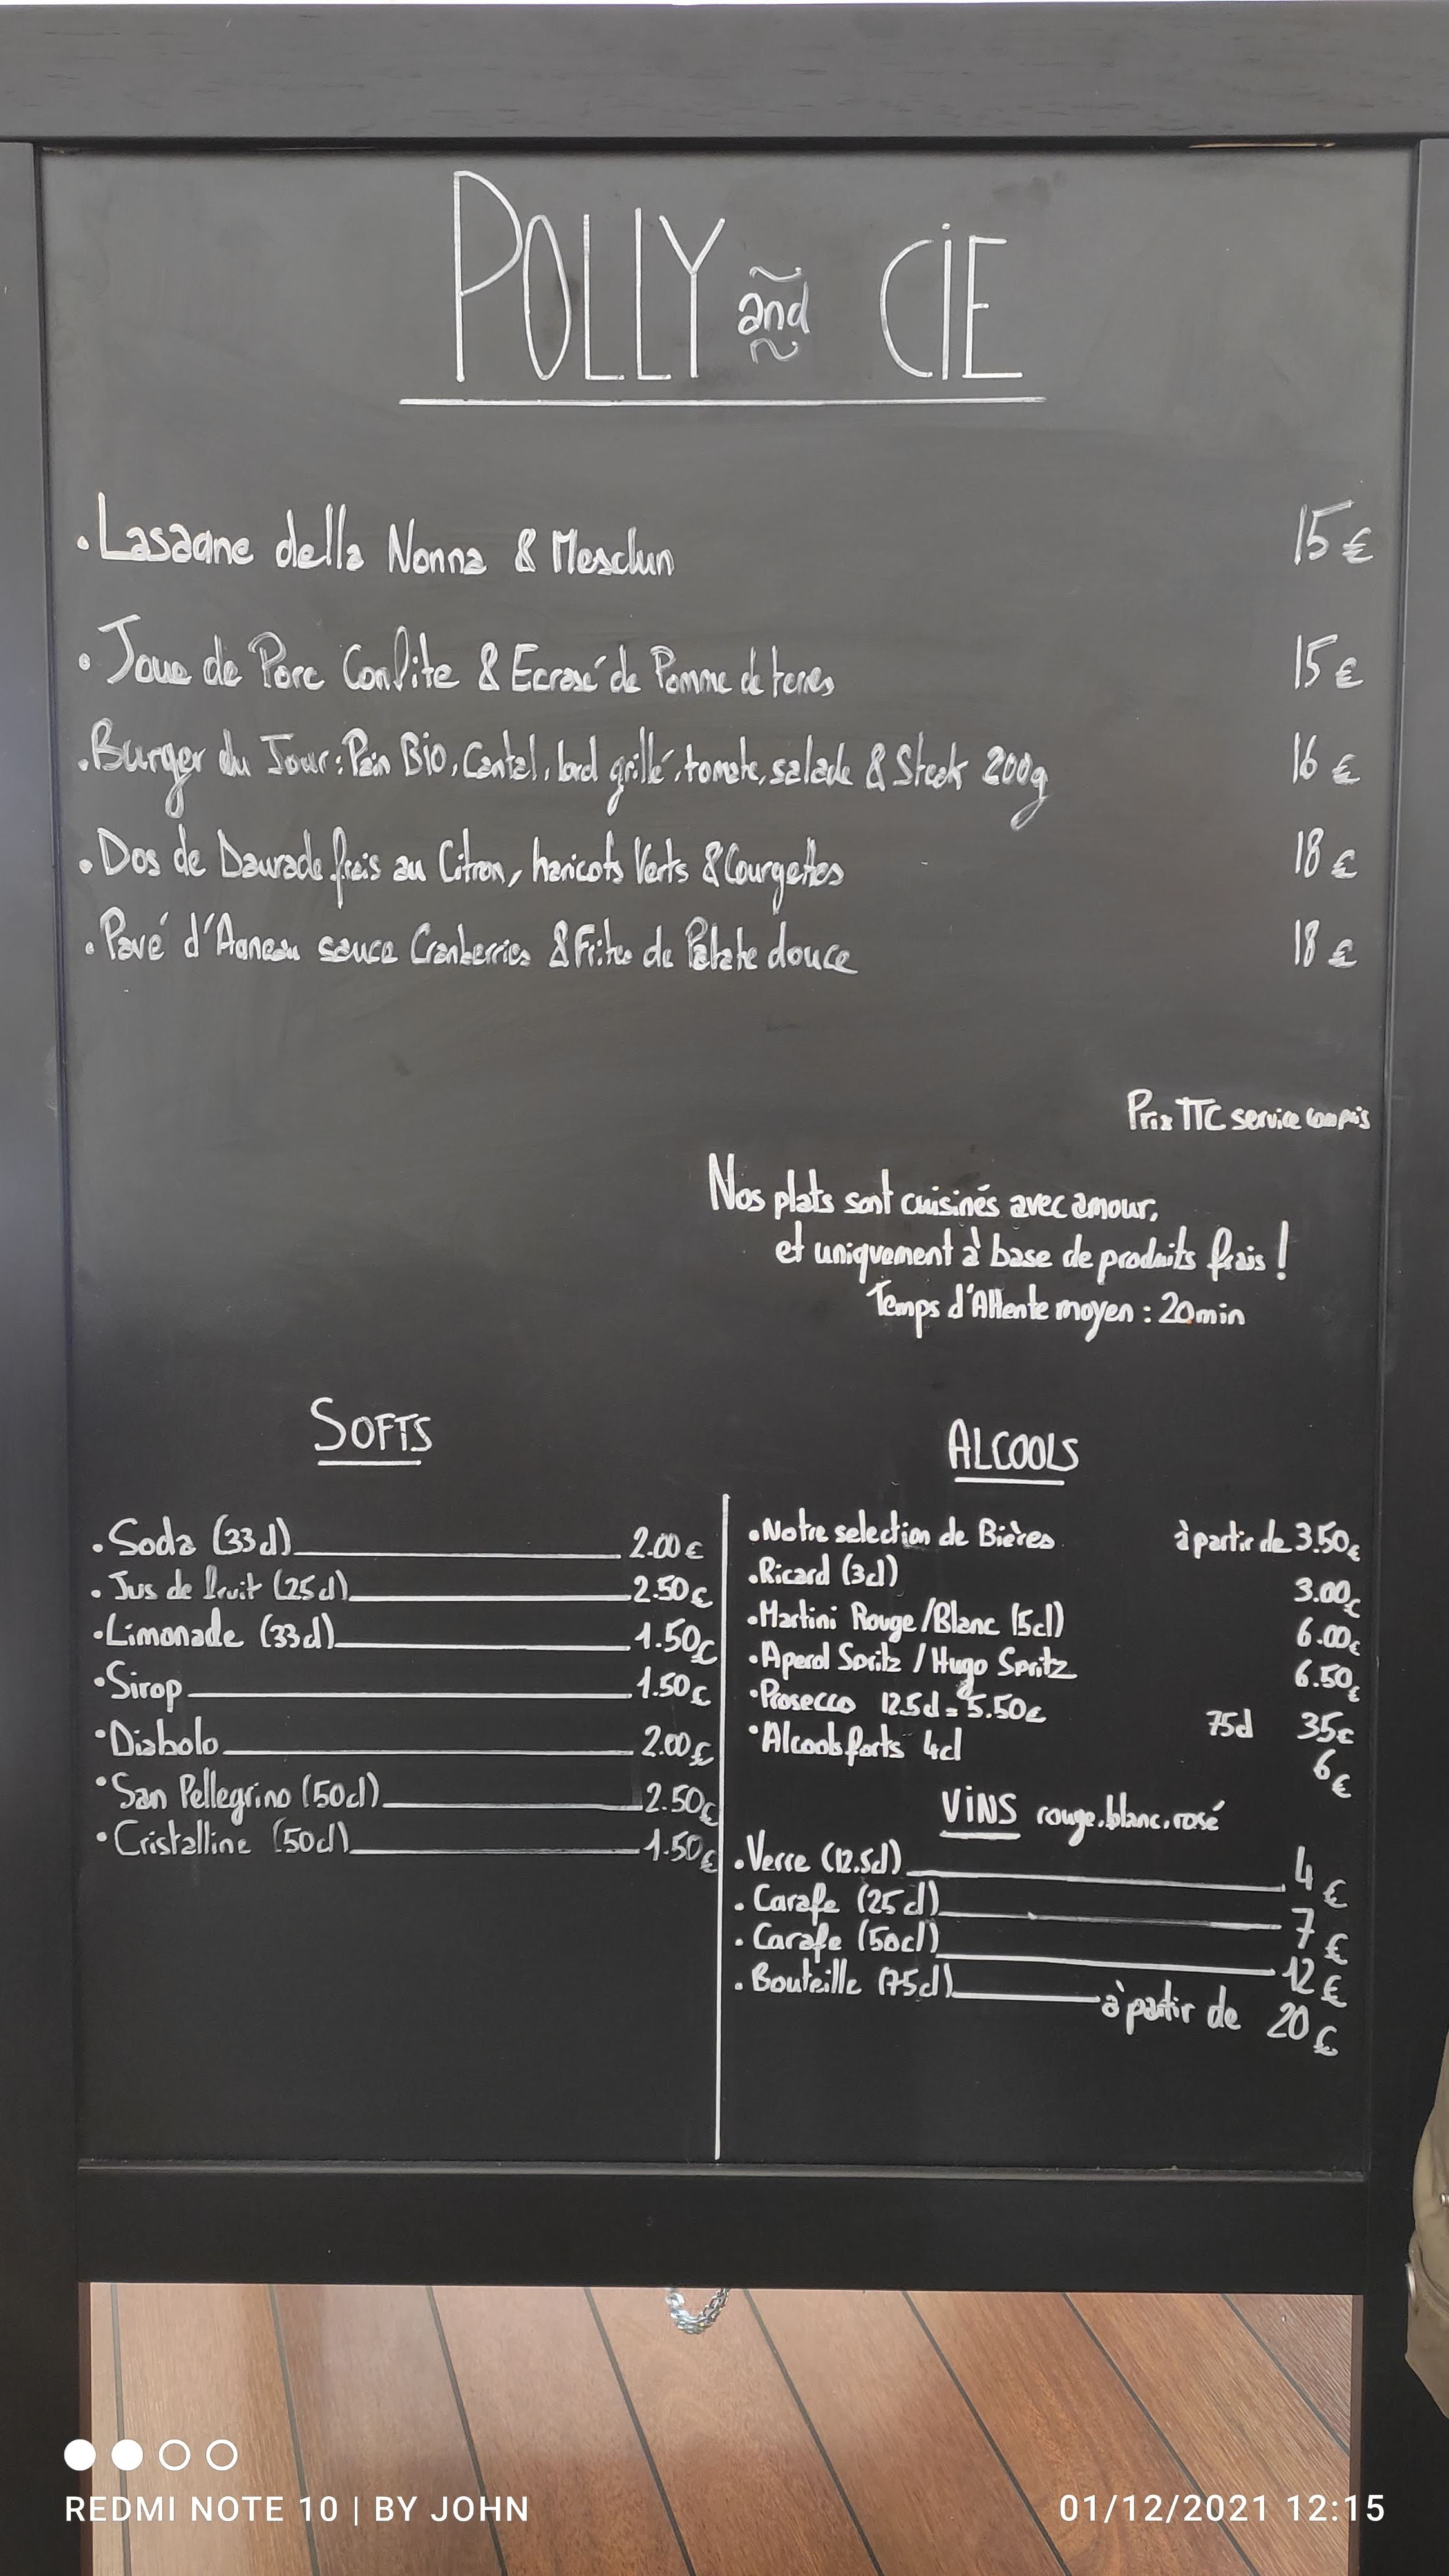 POLLY and CIE
• Lasagne della Nonna & Mesclun 15€
• Joue de Porc Confite & Ecrasé de Pomme de terres 15€
• Burger du Jour : Pain Bio, Cantal, lard grillé, tomate, salade & Steak 200g 16€
• Dos de Daurade frais au Citron, haricots Verts & Courgettes 18€
• Pavé d'Agneau sauce Cranberries & Frites de Patate douce 18€
Prix TTC service compris
Nos plats sont cuisinés avec amour,
et uniquement à base de produits frais !
Temps d'Attente moyen : 20min
SOFTS
• Soda (33cl) 2.00€
• Jus de fruit (25cl) 2.50€
• Limonade (33cl) 1.50€
• Sirop 1.50€
• Diabolo 2.00€
• San Pellegrino (50cl) 2.50€
• Cristalline (50cl) 1.50€
ALCOOLS
• Notre selection de Bières à partir de 3.50€
• Ricard (3cl) 3.00€
• Martini Rouge/Blanc (5cl) 6.00€
• Aperol Spritz / Hugo Spritz 6.50€
• Prosecco 12.5cl = 5.50€ 75cl 35€
• Alcools forts 4cl 6€
VINS rouge, blanc, rosé
• Verre (12.5cl) 4€
• Carafe (25cl) 7€
• Carafe (50cl) 12€
• Bouteille (75cl) à partir de 20€
REDMI NOTE 10 | BY JOHN
01/12/2021 12:15